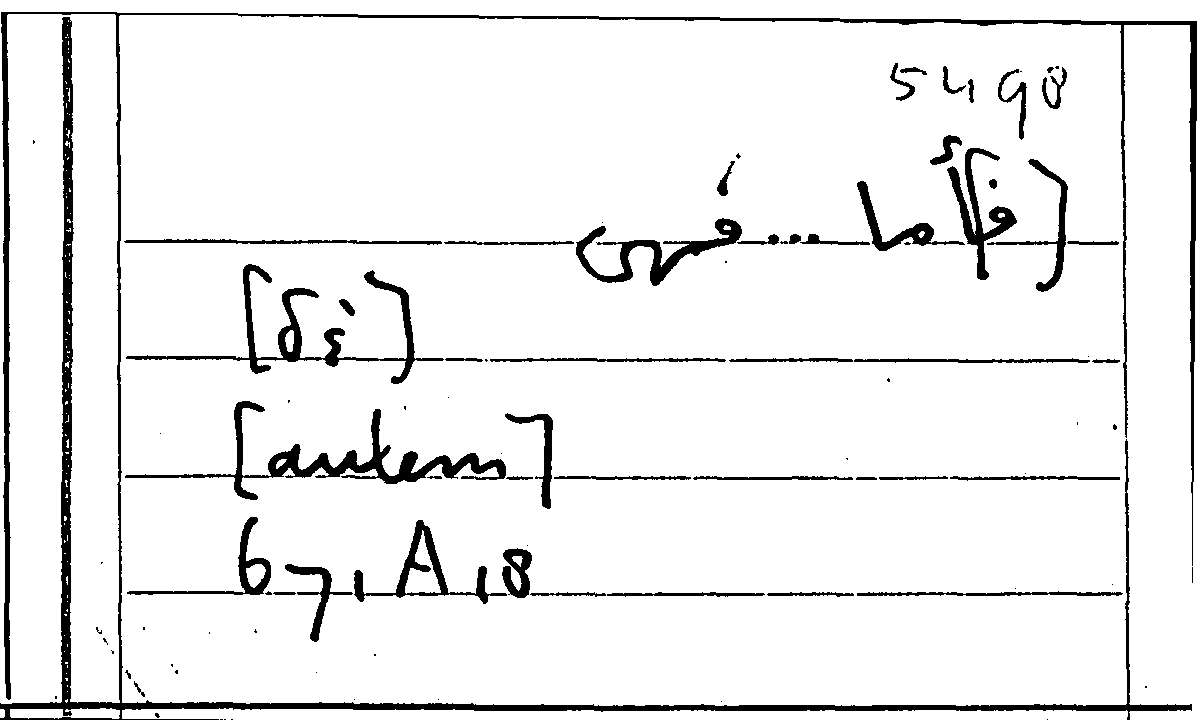 5498
[فأما ... فمن]
[δὲ]
[autem]
67, A, 8